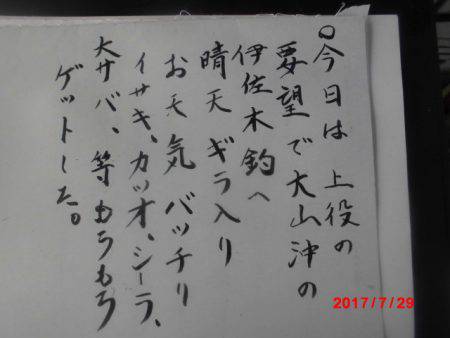 ○今日は上役の
要望で大山沖の
伊佐木釣へ
晴天ギラ入り
お天気バッチリ
イサキ、カツオ、シーラ、
大サバ、等もろもろ
ゲットした。
2017/7/29